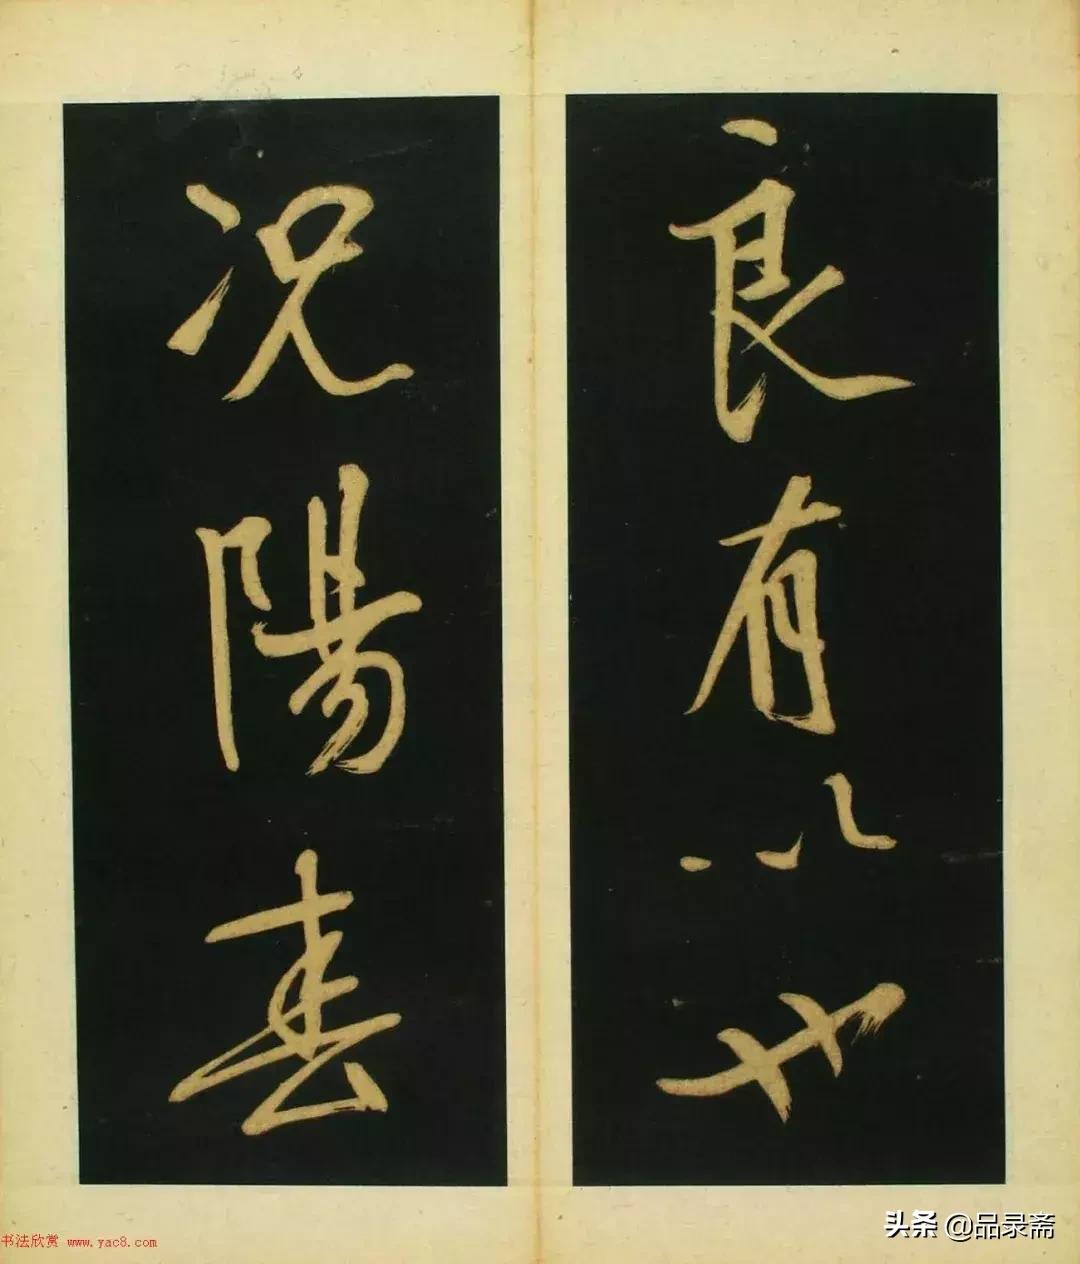 良有以也
况陽春
书法欣赏 www.yac8.com
头条 @品录斋